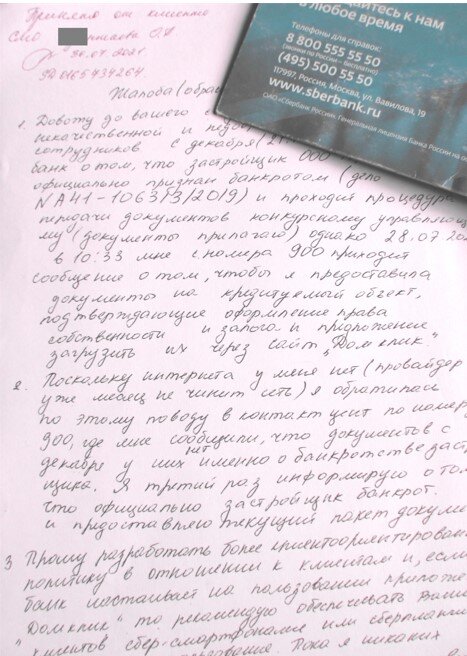 Принято от клиента
СМО
О.А.
30.07.2021
Жалоба (обра
айтесь к нам
в любое время
Телефоны для справок:
8 800 555 55 50
(звонки по России – бесплатно)
(495) 500 55 50
117997, Россия, Москва, ул. Вавилова, 19
www.sberbank.ru
ОАО «Сбербанк России». Генеральная лицензия Банка России на
1. Довожу до вашего
некачественной и недо
сотрудников с декабря
банк о том, что застройщик ООО
официально признан банкротом (дело
NА41-106373/2019) и проходит процедура
передачи документов конкурсному управляю
му (документы прилагаю) однако 28.07
в 10:33 мне с номера 900 приходит
сообщение о том, чтобы я предоставила
документы на кредитуемый объект,
подтверждающие оформление права
собственности и залога и предложение
загрузить их через сайт „Домклик."
2. Поскольку интернета у меня нет (провайдер
уже месяц не чинит сеть) я обратилась
по этому поводу в контакт цент по номер
900, где мне сообщили, что документов с
декабря у них нет именно о банкротстве заст
щика. Я третий раз информирую о то
что официально застройщик банкрот.
и предоставляю текущий пакет докуме
3 Прошу разработать более клиентоориентирован
политику в отношении к клиентам и, если
банк настаивает на пользовании прилоте
„Домклик" то рекомендую обеспечивать
клиентов сбер-смартфонами или сберплан
Пока я никаких